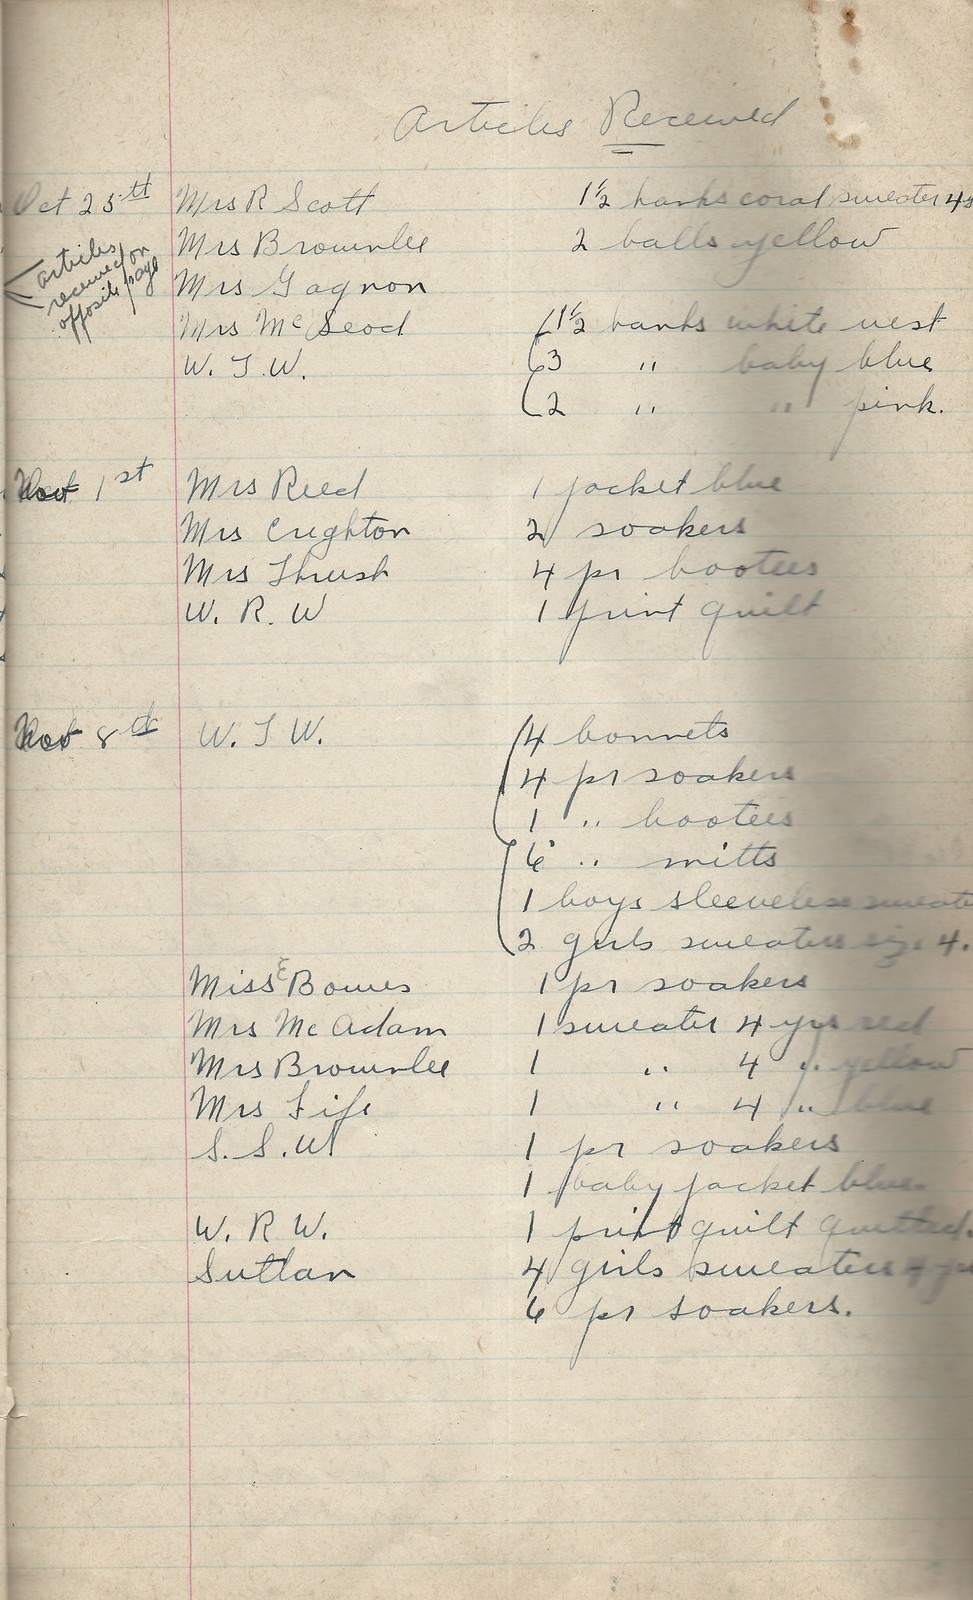 Articles Received
Oct 25th Mrs R Scott 1½ hanks coral sweater 4s
Mrs Brownlee 2 balls yellow
articles received on opposite page
Mrs Gagnon
Mrs McLeod 1½ hanks white vest
W. I. W. 3 " baby blue
2 " " pink.
Nov 1st Mrs Reed 1 jacket blue
Mrs Crighton 2 soakers
Mrs Thrush 4 pr bootees
W. R. W 1 print quilt
Nov 8th W. I W. 4 bonnets
4 pr soakers
1 " bootees
6 " mitts
1 boys sleeveless sweater
2 girls sweaters size 4.
Miss E Bowes 1 pr soakers
Mrs McAdam 1 sweater 4 yrs red
Mrs Brownlee 1 " 4 " yellow
Mrs Fife 1 " 4 " blue
S. S. W 1 pr soakers
1 baby jacket blue
W. R W. 1 print quilt quilted.
4 girls sweaters
6 pr soakers.